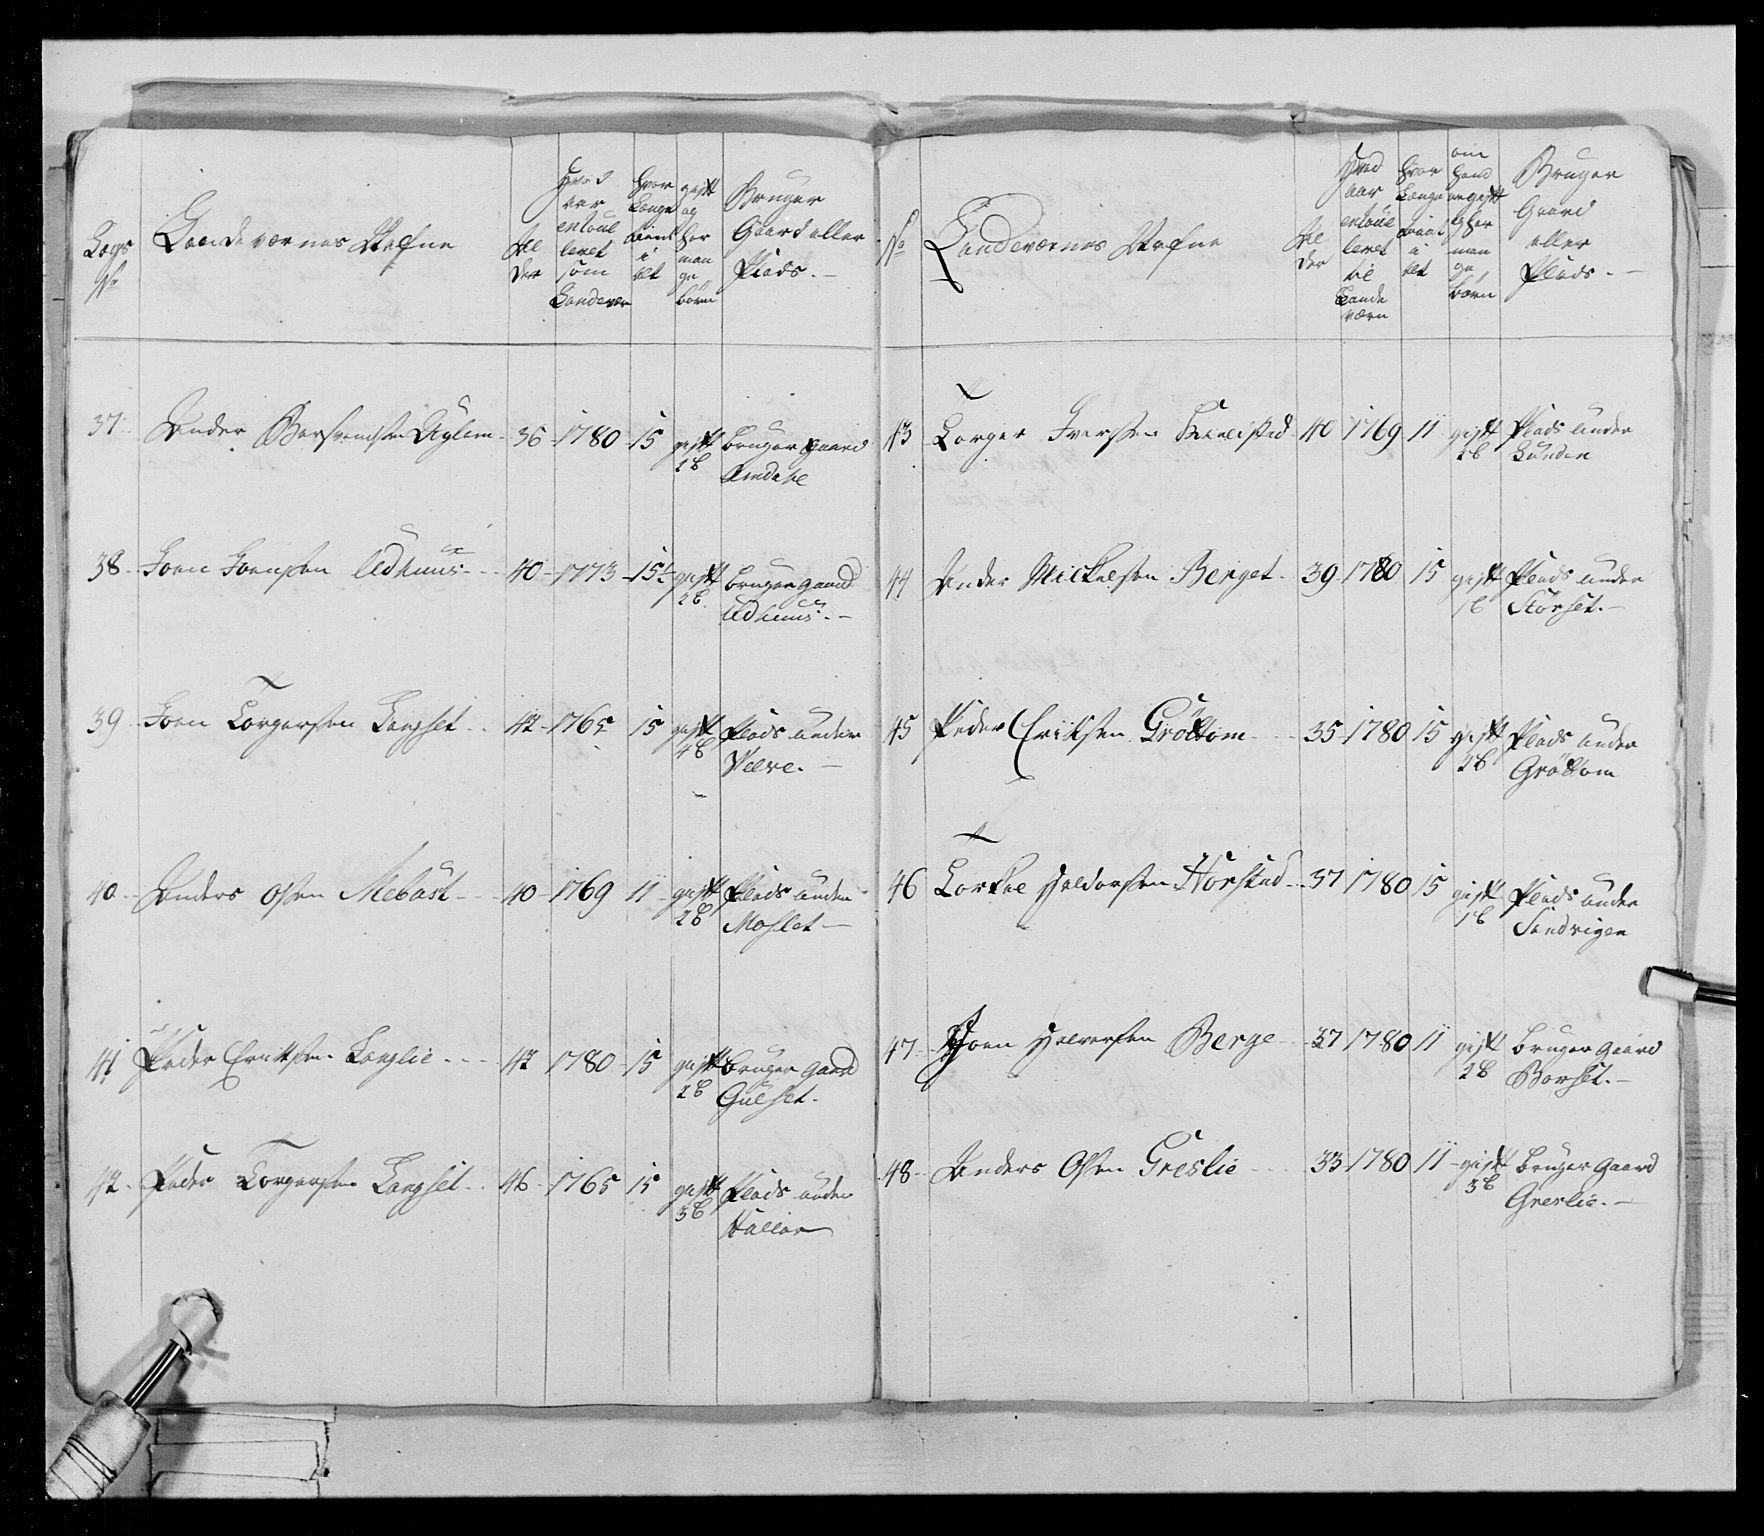 Lægs
No
Landeværnes Nafne
Al
der
Hvad
aar
enroul
leret
som
Landevær
hvor
Længe
tient
i
alt
gift
og
har
man
ge
børn
Bruger
Gaard eller
Plads. -
37. Ander Aglem - 36 - 1780 - 15 gift bruger gaard
2 B
38 - Joen Joensen Udhuus - 40 - 1773 - 15 1/2 gift bruger gaard
2 B. Udhuus. -
39 - Joen Torgersen Langset - 42 - 1765 15 gift Plads under
4 B
40 - Anders Olsen Mebust - 40 - 1769 11 - gift Plads under
2 B Moslet -
41 Peder Erichsen Langlie - 42 1780 - 15 gift bruger gaard
2 B Gulset.
42 - Peder Torgersen Langset - 46 - 1765 15 gift Plads under
3 B
No
Landeværnes Nafne
Al
der
Hvad
aar
enroul
leret
til
Lande
værn
hvor
Længe
tient
i
alt
om
hand
er gift
og har
man
ge
børn
Bruger
Gaard
eller
Plads. -
43 Torger Iversen - 40 1769 11 gift Plads under
2 B Lunden
44 Ander Mickelsen Berget - 39 - 1780 15 gift Plads under
1 B Storset. -
45 Peder Eriksen Grøttom - 35 - 1780 15 gift Plads under
2 B Grøttom
46 Torkel Haldorsen Horstad - 37 1780 15 gift Plads under
1 B Sandvigen
47 - Joen Halvorsen Berge - 37 1780 11 gift bruger gaard
2 B Borset. -
48 - Anders Olsen Greslie - 33 - 1780 11 - gift bruger gaard
3 B Greslie. -